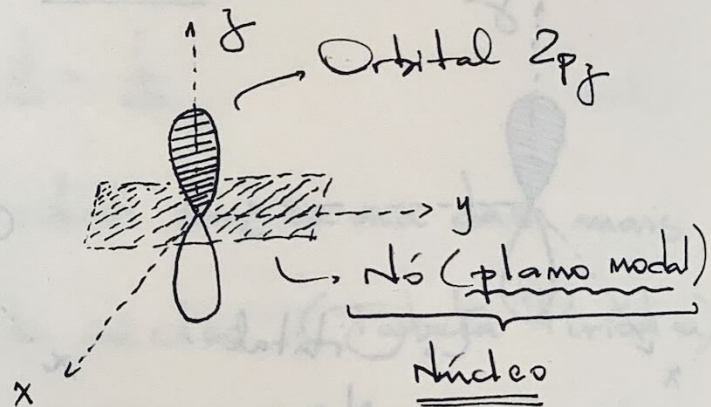 z
Orbital 2pz
y
Nó (plano nodal)
Núcleo
x